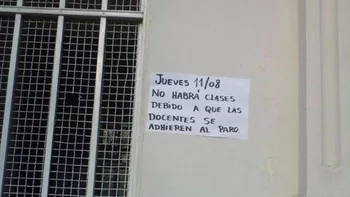 JUEVES 11/08
NO HABRÁ CLASES
DEBIDO A QUE LAS
DOCENTES SE
ADHIEREN AL PARO.